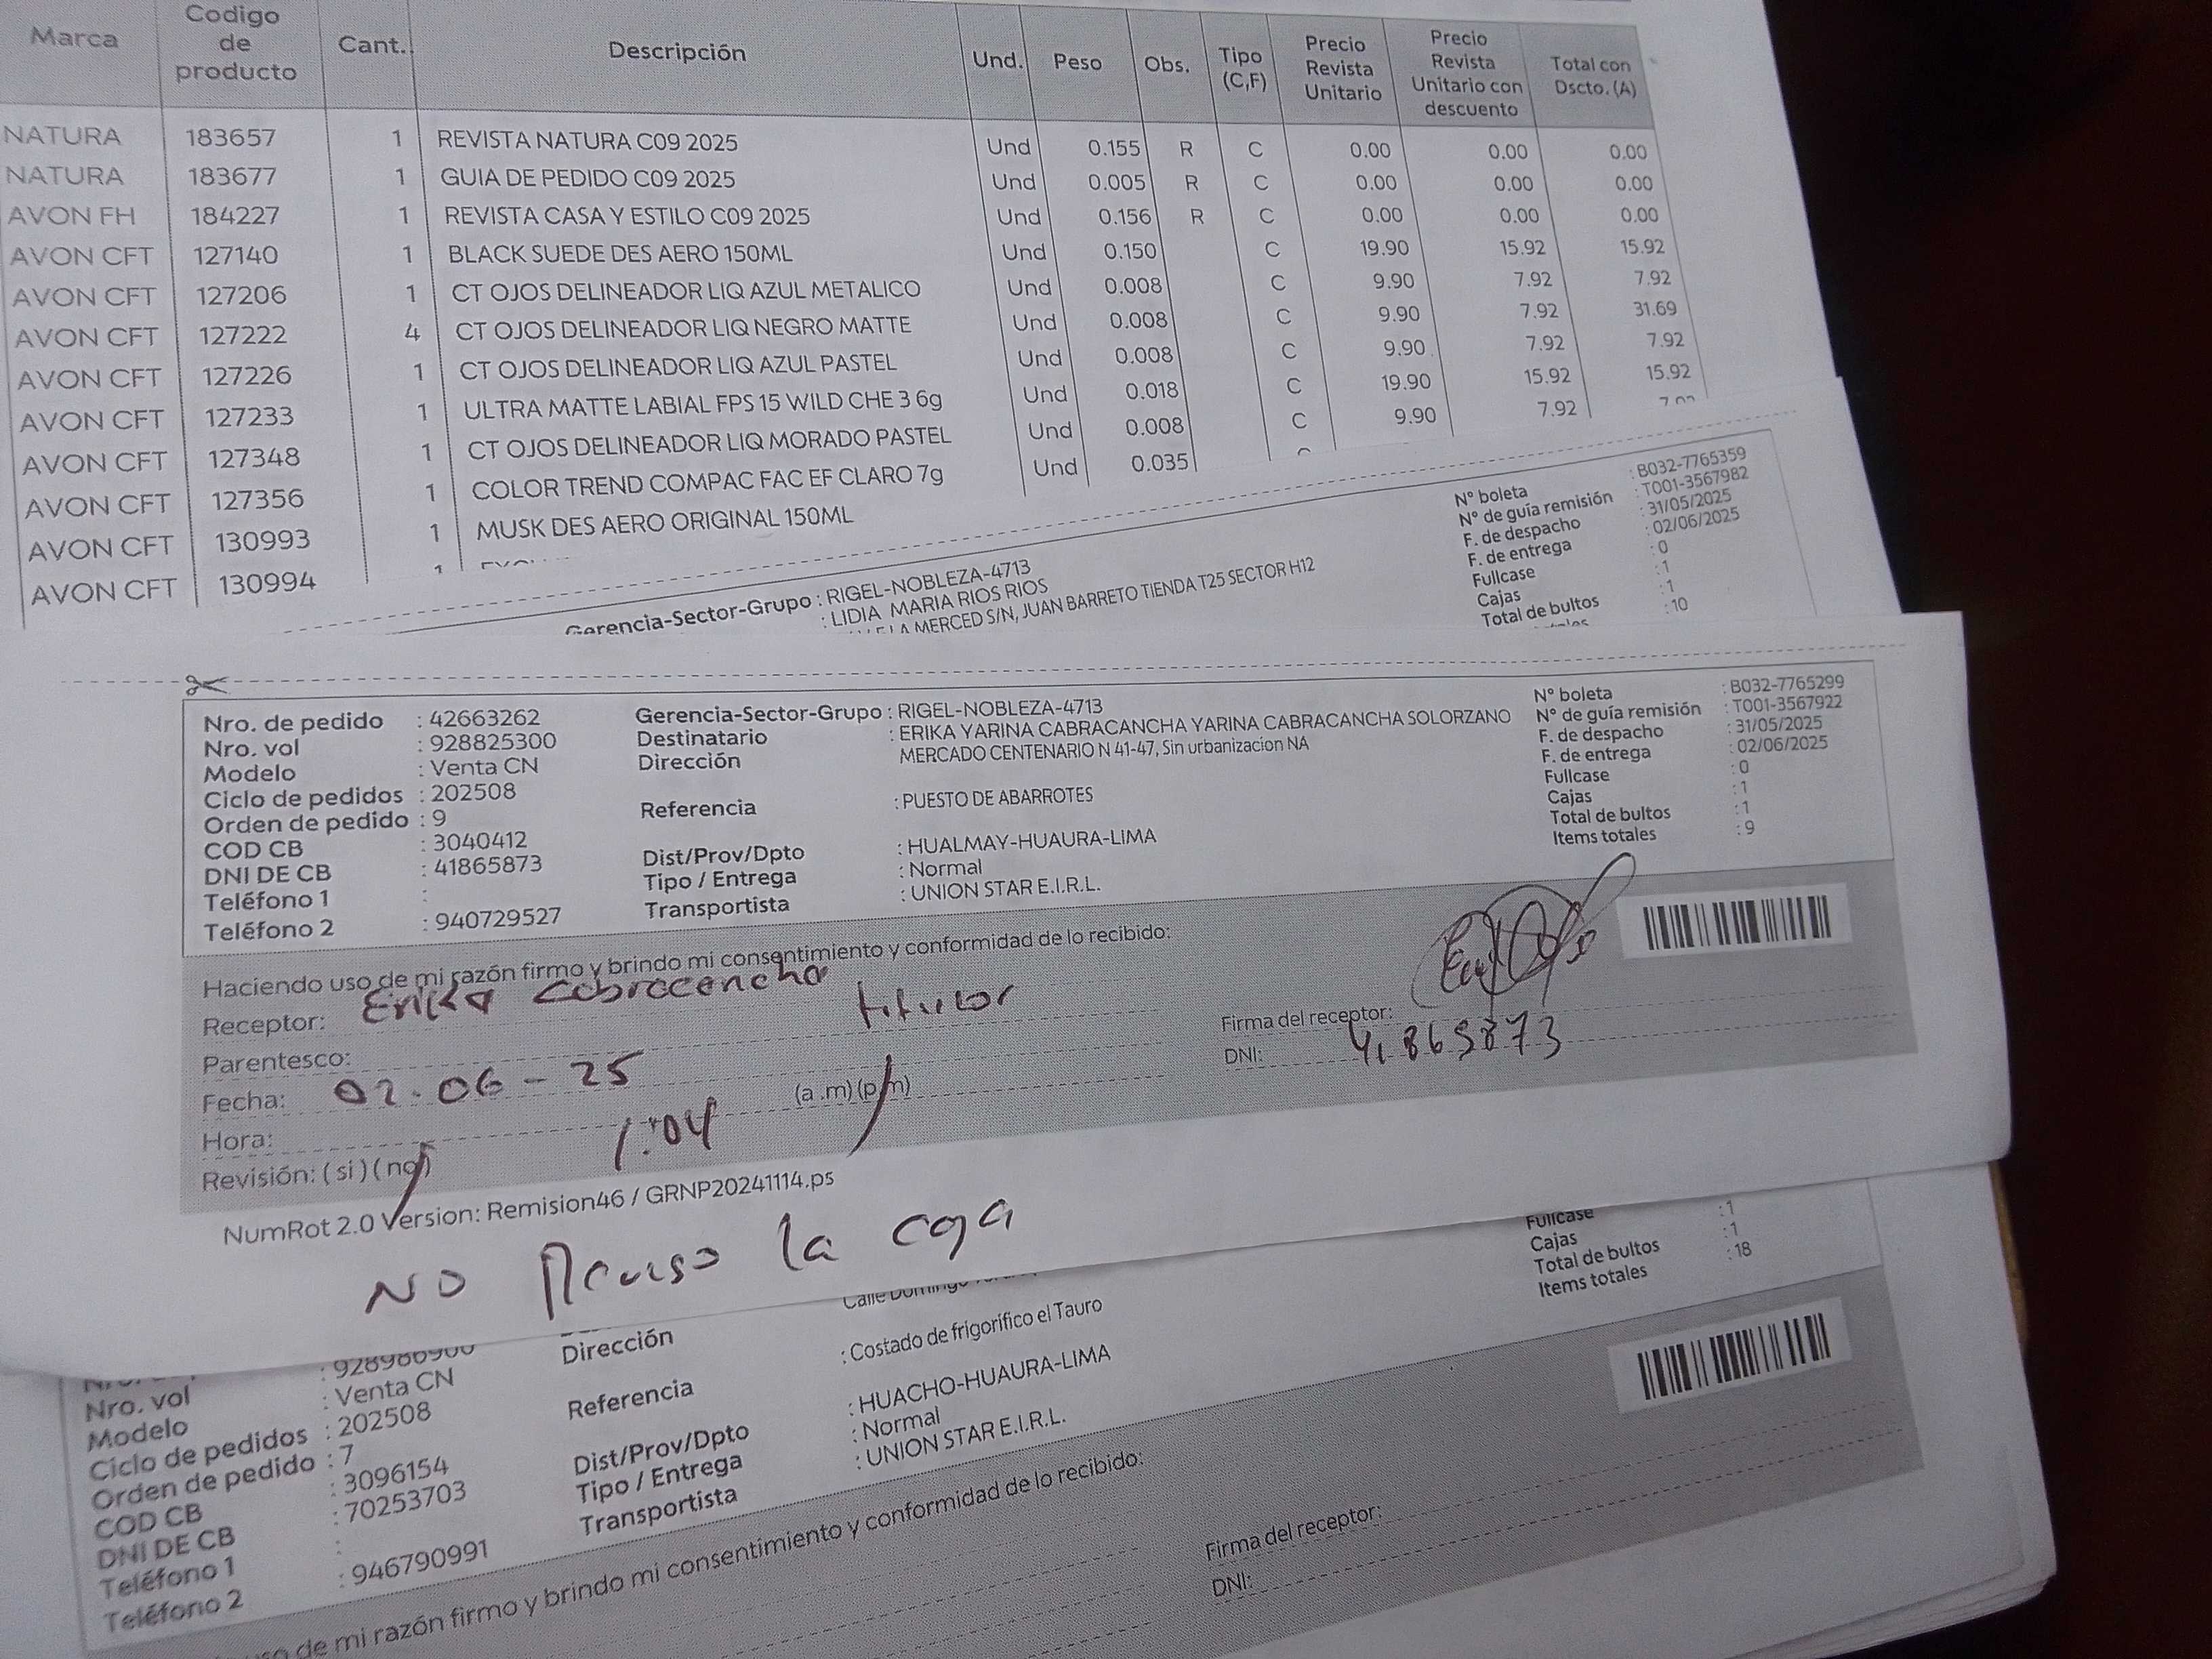 Marca Codigo de producto Cant. Descripción Und. Peso Obs. Tipo (C,F) Precio Revista Unitario Precio Revista Unitario con descuento Total con Dscto. (A)
NATURA 183657 1 REVISTA NATURA C09 2025 Und 0.155 R C 0.00 0.00 0.00
NATURA 183677 1 GUIA DE PEDIDO C09 2025 Und 0.005 R C 0.00 0.00 0.00
AVON FH 184227 1 REVISTA CASA Y ESTILO C09 2025 Und 0.156 R C 0.00 0.00 0.00
AVON CFT 127140 1 BLACK SUEDE DES AERO 150ML Und 0.150 C 19.90 15.92 15.92
AVON CFT 127206 1 CT OJOS DELINEADOR LIQ AZUL METALICO Und 0.008 C 9.90 7.92 7.92
AVON CFT 127222 4 CT OJOS DELINEADOR LIQ NEGRO MATTE Und 0.008 C 9.90 7.92 31.69
AVON CFT 127226 1 CT OJOS DELINEADOR LIQ AZUL PASTEL Und 0.008 C 9.90 7.92 7.92
AVON CFT 127233 1 ULTRA MATTE LABIAL FPS 15 WILD CHE 3 6g Und 0.018 C 19.90 15.92 15.92
AVON CFT 127348 1 CT OJOS DELINEADOR LIQ MORADO PASTEL Und 0.008 C 9.90 7.92
AVON CFT 127356 1 COLOR TREND COMPAC FAC EF CLARO 7g Und 0.035
AVON CFT 130993 1 MUSK DES AERO ORIGINAL 150ML
AVON CFT 130994 1
Gerencia-Sector-Grupo : RIGEL-NOBLEZA-4713
: LIDIA MARIA RIOS RIOS
LA MERCED S/N, JUAN BARRETO TIENDA T25 SECTOR H12
N° boleta : B032-7765359
N° de guía remisión : T001-3567982
F. de despacho : 31/05/2025
F. de entrega : 02/06/2025
Fullcase : 0
Cajas : 1
Total de bultos : 1
: 10
Nro. de pedido : 42663262
Nro. vol : 928825300
Modelo : Venta CN
Ciclo de pedidos : 202508
Orden de pedido : 9
COD CB : 3040412
DNI DE CB : 41865873
Teléfono 1 :
Teléfono 2 : 940729527
Gerencia-Sector-Grupo : RIGEL-NOBLEZA-4713
Destinatario : ERIKA YARINA CABRACANCHA YARINA CABRACANCHA SOLORZANO
Dirección MERCADO CENTENARIO N 41-47, Sin urbanizacion NA
Referencia : PUESTO DE ABARROTES
Dist/Prov/Dpto : HUALMAY-HUAURA-LIMA
Tipo / Entrega : Normal
Transportista : UNION STAR E.I.R.L.
N° boleta : B032-7765299
N° de guía remisión : T001-3567922
F. de despacho : 31/05/2025
F. de entrega : 02/06/2025
Fullcase : 0
Cajas : 1
Total de bultos : 1
Items totales : 9
Haciendo uso de mi razón firmo y brindo mi consentimiento y conformidad de lo recibido:
Receptor: Erika Cabracancha
Parentesco: titular
Fecha: 02-06-25
Hora: 1:04 (a.m) (p.m)
Revisión: (si) (no)
Firma del receptor:
DNI: 41865873
NumRot 2.0 Version: Remision46 / GRNP20241114.ps
NO Reviso la caja
Nro. vol : 928986900
Modelo : Venta CN
Ciclo de pedidos : 202508
Orden de pedido : 7
COD CB : 3096154
DNI DE CB : 70253703
Teléfono 1 :
Teléfono 2 : 946790991
Calle
Dirección
Referencia : Costado de frigorífico el Tauro
Dist/Prov/Dpto : HUACHO-HUAURA-LIMA
Tipo / Entrega : Normal
Transportista : UNION STAR E.I.R.L.
Fullcase
Cajas : 1
Total de bultos : 1
Items totales : 18
de mi razón firmo y brindo mi consentimiento y conformidad de lo recibido:
Firma del receptor:
DNI: